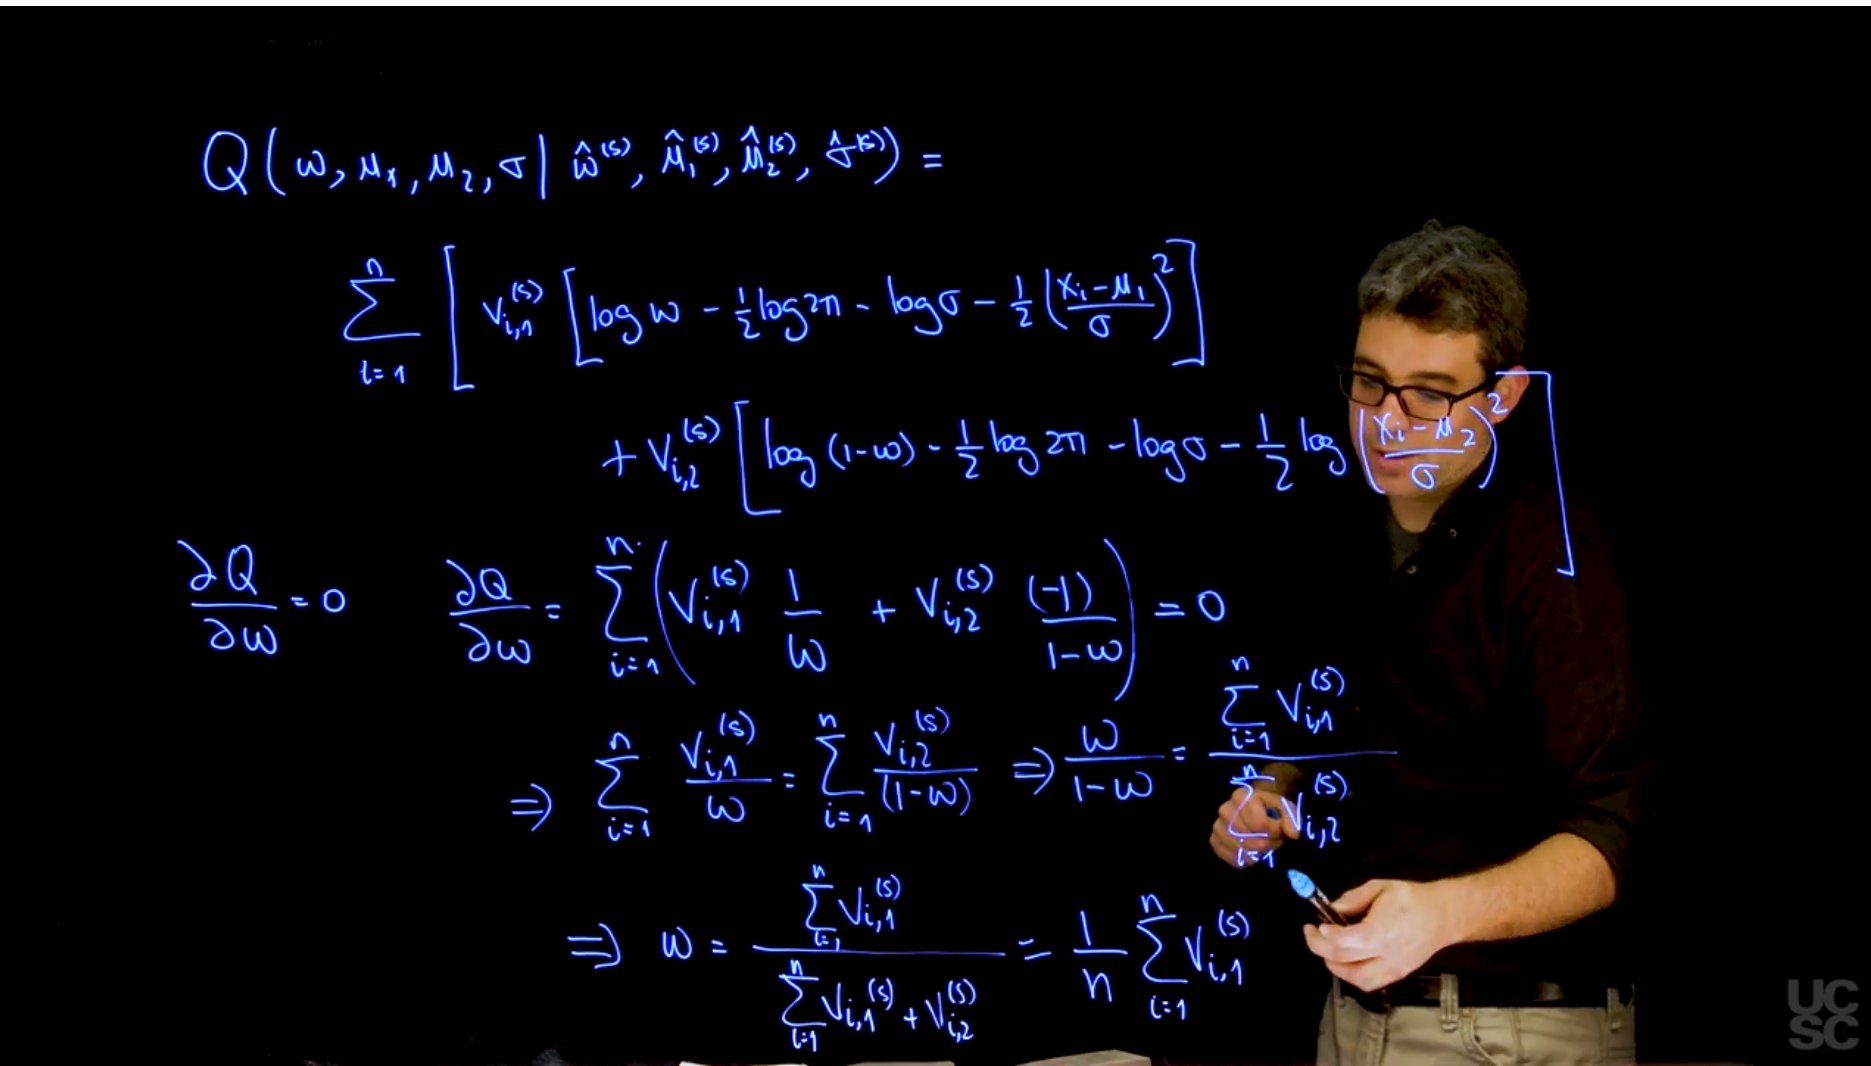 Q(ω, μ₁, μ₂, σ | ω̂⁽ˢ⁾, μ̂₁⁽ˢ⁾, μ̂₂⁽ˢ⁾, σ̂⁽ˢ⁾) =
∑_{i=1}^{n} [ v_{i,1}^{(s)} [ log ω - 1/2 log 2π - log σ - 1/2 ((x_i - μ_1)/σ)^2 ]
+ v_{i,2}^{(s)} [ log (1-ω) - 1/2 log 2π - log σ - 1/2 log ((x_i - μ_2)/σ)^2 ]
∂Q/∂ω = 0 ∂Q/∂ω = ∑_{i=1}^{n} ( v_{i,1}^{(s)} 1/ω + v_{i,2}^{(s)} (-1)/(1-ω) ) = 0
⇒ ∑_{i=1}^{n} v_{i,1}^{(s)}/ω = ∑_{i=1}^{n} v_{i,2}^{(s)}/(1-ω) ⇒ ω/(1-ω) = ∑_{i=1}^{n} v_{i,1}^{(s)} / ∑_{i=1}^{n} v_{i,2}^{(s)}
⇒ ω = ∑_{i=1}^{n} v_{i,1}^{(s)} / ∑_{i=1}^{n} v_{i,1}^{(s)} + v_{i,2}^{(s)} = 1/n ∑_{i=1}^{n} v_{i,1}^{(s)}
UC
SC